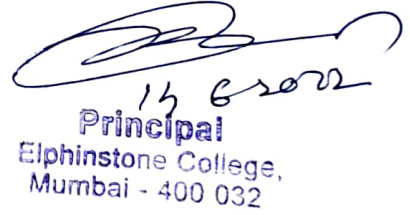 Principal
Elphinstone College,
Mumbai - 400 032